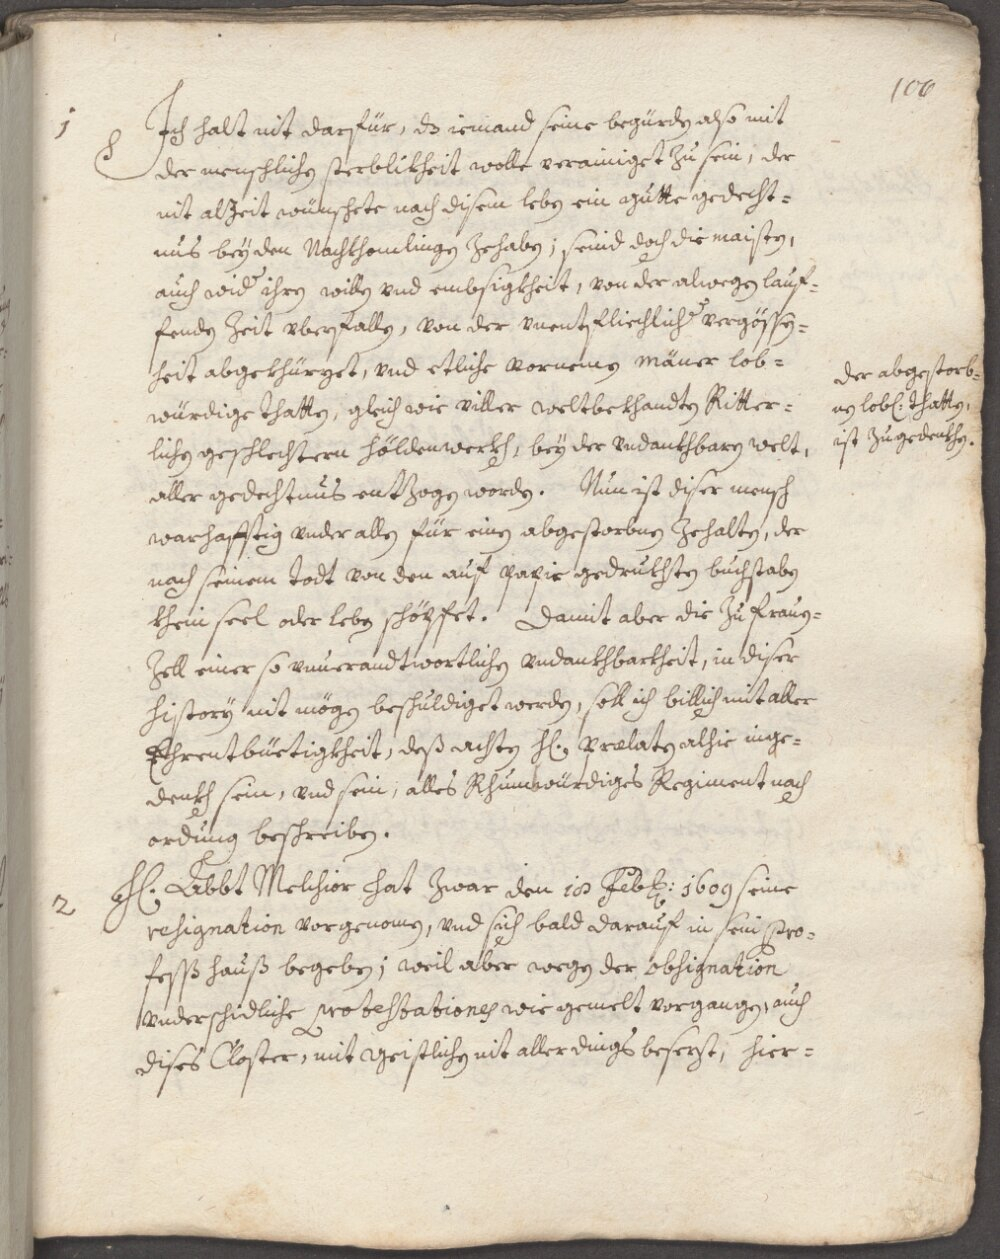 106
1 Ich halt nit darfür, dz iemand seine begürden also mit
der menschlichen sterblikheit wolle verainiget zu sein, der
nit alzeit wünschete nach disem leben ein gutte gedecht=
nus bey den Nachkhomlingen zehaben; seind doch die maisten,
auch wider ihren willen vnd embsigkheit, von der alwegen lauf=
fenden Zeit vberfallen, von der vnentfliechlicher vergössen=
heit abgekhürzet, vnd etliche vornemen mäner lob=
würdige thatten, gleich wie viller weltbekhandten Ritter=
lichen geschlechtern höldenwerkh, bey der vndankhbaren welt,
aller gedechtnus entzogen worden. Nun ist diser mensch
warhafftig vnder allen für einen abgestorbnen zehalten, der
nach seinem todt von den auf papir gedrukhten buchstaben
khein seel oder leben schöpffet. Damit aber die zu Frauen=
Zell einer so vnuerandtwortlichen vndankhbarkheit, in diser
history nit mögen beschuldiget werden, soll ich billich mit aller
Ehrentbüetigkheit, deß achten H. prælaten alhie inge=
denkh sein, vnd sein, alles Rhumwürdiges Regiment nach
ordung beschreiben.
der abgestorb=
nen lobl: thatten,
ist zugedenkhen.
2 H. Abbt Melchior hat zwar den 18 Feb: 1609 seine
resignation vorgenomen, vnd sich bald darauf in sein pro=
fesß hauß begeben; weil aber wegen der obsignation
vnderschidliche protestationes wie gemelt vorgangen, auch
dises Closter, mit geistlichen nit allerdings besezt, hier=